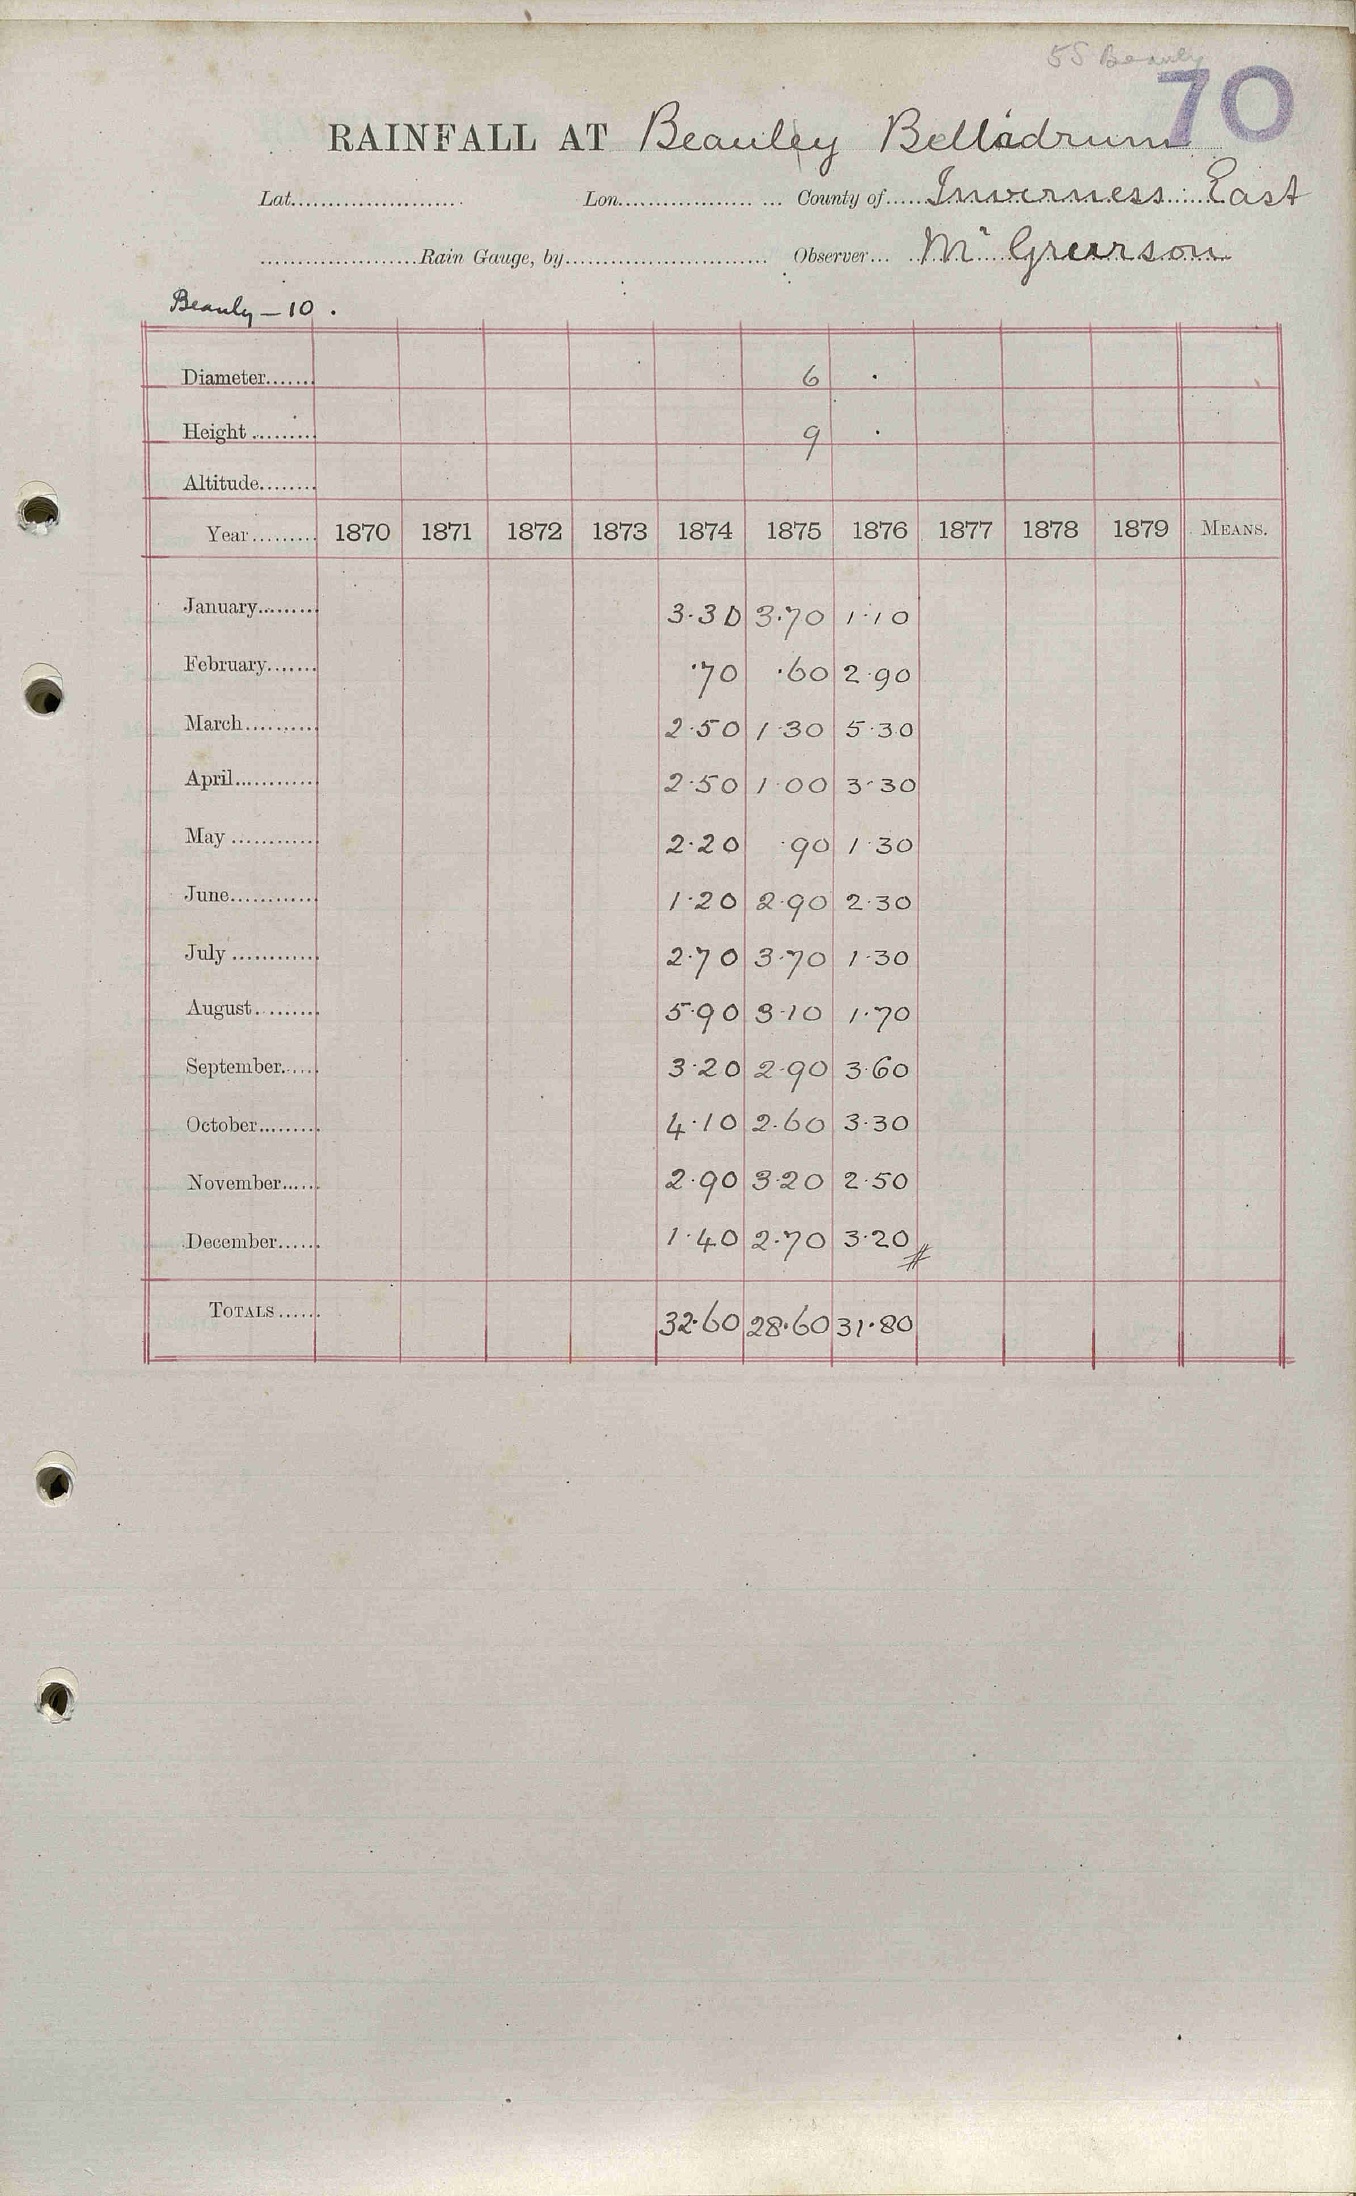 5S Beauly
70
RAINFALL AT Beauley Belladrum
Lat. Lon. County of Inverness East
Rain Gauge, by Observer Mr Grierson
Beauly - 10.
Diameter 6 .
Height 9 .
Altitude
Year 1870 1871 1872 1873 1874 1875 1876 1877 1878 1879 MEANS.
January 3.30 3.70 1.10
February .70 .60 2.90
March 2.50 1.30 5.30
April 2.50 1.00 3.30
May 2.20 .90 1.30
June 1.20 2.90 2.30
July 2.70 3.70 1.30
August 5.90 3.10 1.70
September 3.20 2.90 3.60
October 4.10 2.60 3.30
November 2.90 3.20 2.50
December 1.40 2.70 3.20 #
TOTALS 32.60 28.60 31.80